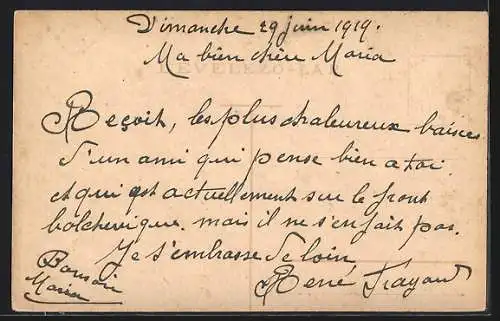 Dimanche 29 juin 1919.
Ma bien chère Maria
Reçoit, les plus chaleureux baisees
d'un ami qui pense bien a toi
et qui est actuellement sur le front
bolchevique. mais il ne s'en fait pas.
Je t'embrasse de loin,
René
Bonsoir
Maria